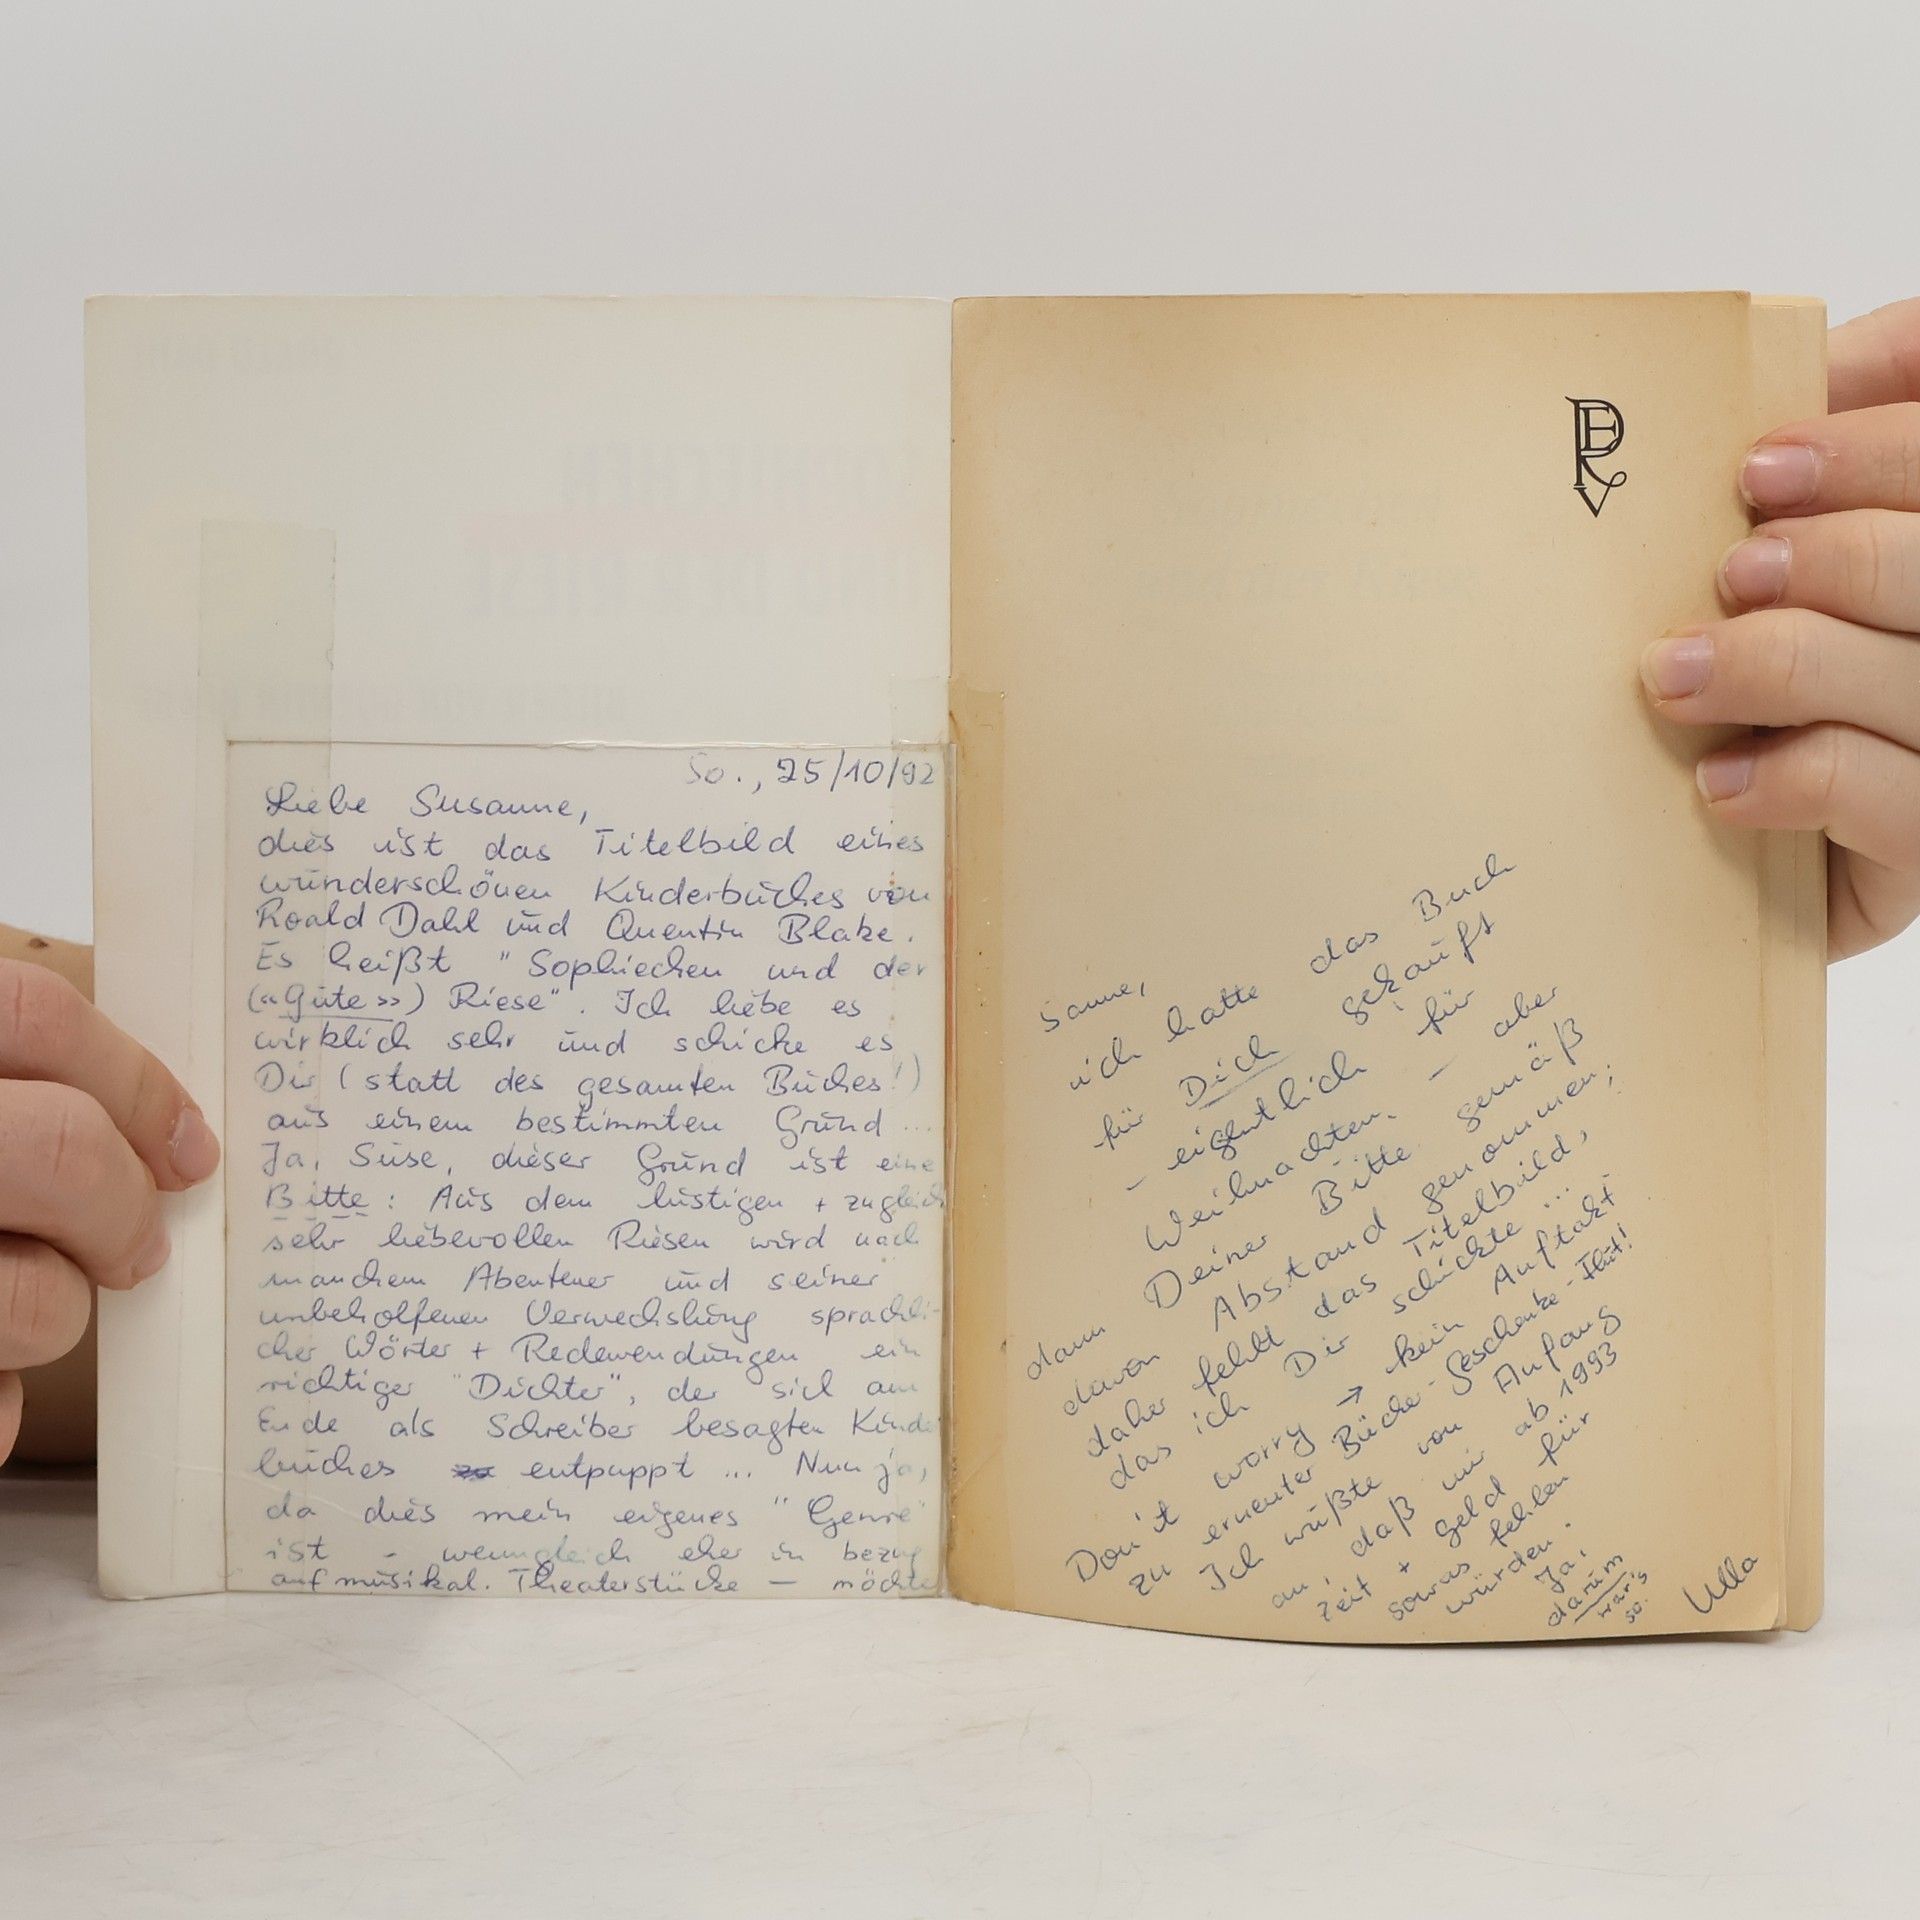 So., 25/10/92
Liebe Susanne,
dies ist das Titelbild eines
wunderschönen Kinderbuches von
Roald Dahl und Quentin Blake.
Es heißt "Sophiechen und der
(«Gute») Riese". Ich liebe es
wirklich sehr und schicke es
Dir (statt des gesamten Buches!)
aus einem bestimmten Grund...
Ja, Suse, dieser Grund ist eine
Bitte: Aus dem lustigen + zugleich
sehr liebevollen Riesen wird nach
manchem Abenteuer und seiner
unbeholfenen Verwechslung sprachli-
cher Wörter + Redewendungen ein
richtiger "Dichter", der sich am
Ende als Schreiber besagten Kinder
buches entpuppt... Nun ja,
da dies mein eigenes "Genre"
ist - wenngleich eher in bezug
auf musikal. Theaterstücke — möchte
PEV
Sanne,
ich hatte das Buch
für Dich gekauft
- eigentlich für
Weihnachten. - aber
dann Deiner Bitte gemäß
davon Abstand genommen;
daher fehlt das Titelbild,
das ich Dir schickte...
Don't worry → kein Auftakt
zu erneuter Bücher-Geschenke-Flut!
Ich wußte von Anfang
an, daß mir ab 1993
Zeit + Geld für
sowas fehlen
würden.
Ja,
darum
war's
so.
Ulla